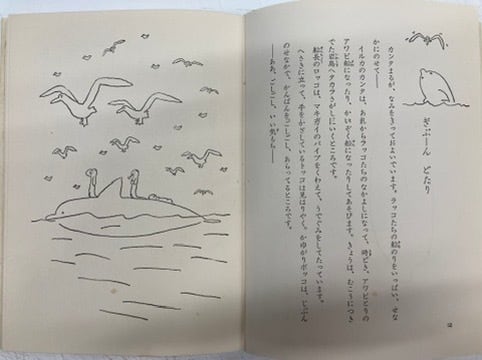 ぎぶーん どたり
カンタまるが、なみをきっておよいでいます。ラッコたちの船のりをいっぱい、せな
かにのせて――
イルカのカンタは、あれからラッコたちのなかよしになって、時どき、アワビとりの
アワビ船になったり、かいぞく船になったりしてあそびます。きょうは、むこうにつき
でた岩島へタカラさがしにいくところです。
船長のロッコは、マキガイのパイプをくわえて、うでぐみをしてたっています。
へさきに立って、手をかざしているトッコは見はりやく。かゆがりボッコは、じぶん
のせなかで、かんぱんをごしごし、あらってるところです。
――ああ、ごしごし、いい気もち――